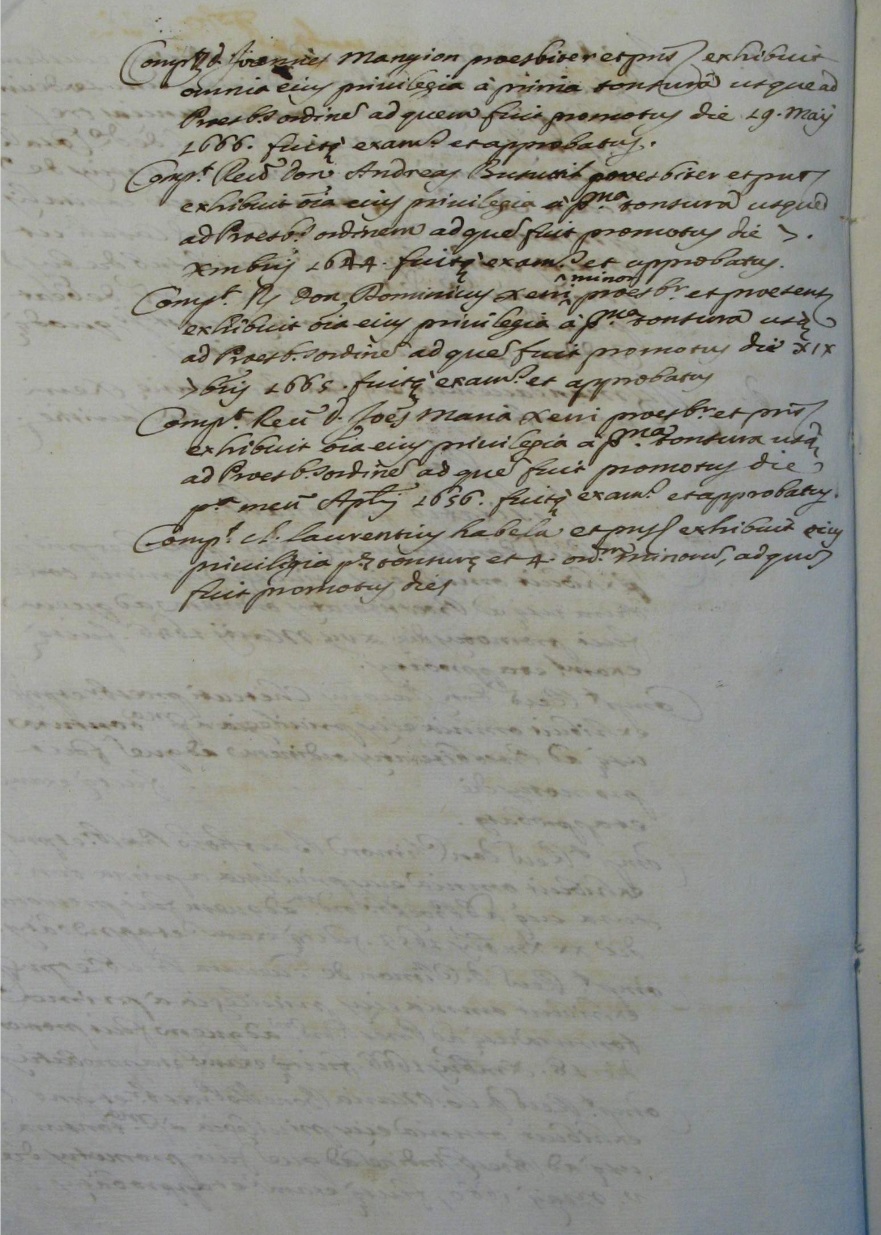 Comp.t D. Joannes Mangion praesbiter et pns̃ exhibuit
omnia eius privilegia à prima tonsurã usque ad
Praesb.s ordinẽ ad quem fuit promotus die 19. Maij
1666. fuitq; exam.s et approbatus.
Comp.t Reũd Don Andreas praesbiter et pns̃
exhibuit oĩa eius privilegia à p.ma tonsurã usque
ad Praesb.s ordinem ad quẽ fuit promotus die 7.
Xmbris 1644. fuitq; exam.s et approbatus.
Comp.t Rs Don Dominicus Xerri ^minor praesb.r et praesens
exhibuit oĩa eius privilegia à p.ma tonsurã usq;
ad Praesb.s ordinẽ ad quẽ fuit promotus die XIX
7bris 1665. fuitq; exam.s et approbatus
Comp.t Reũ D. Joẽs Maria Xerri praesb.r et pris̃
exhibuit oĩa eius privilegia à p.ma tonsura usq;
ad Praesb.s ordinẽ ad quẽ fuit promotus die
p.a mens̃ Aplis 1656. fuitq; exam.s et approbatus.
Comp.t cl. Laurentius habela et pns̃ exhibuit eius
privilegia p.ę tonsurę et 4. ord.m minorũ, ad quos
fuit promotus dies